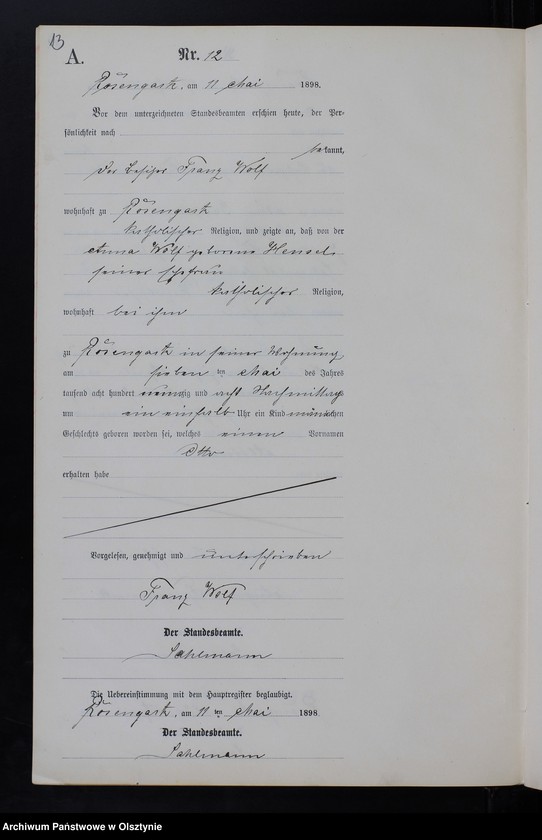 13
A.
Nr. 12
Rosengarth, am 11 Mai 1898.
Vor dem unterzeichneten Standesbeamten erschien heute, der Per-
sönlichkeit nach
bekannt,
Der Besitzer Franz Wolf
wohnhaft zu Rosengarth
katholischer Religion, und zeigte an, daß von der
Anna Wolf geborene Hensel
seiner Ehefrau
katholischer Religion,
wohnhaft bei ihm
zu Rosengarth in seiner Wohnung
am sieben ten Mai des Jahres
tausend acht hundert neunzig und acht Nachmittags
um ein einhalb Uhr ein Kind männlichen
Geschlechts geboren worden sei, welches einen Vornamen
Otto
erhalten habe
Vorgelesen, genehmigt und unterschrieben
Franz Wolf
Der Standesbeamte.
Sahlmann
Die Uebereinstimmung mit dem Hauptregister beglaubigt.
Rosengarth, am 11 ten Mai 1898
Der Standesbeamte.
Sahlmann
Archiwum Państwowe w Olsztynie